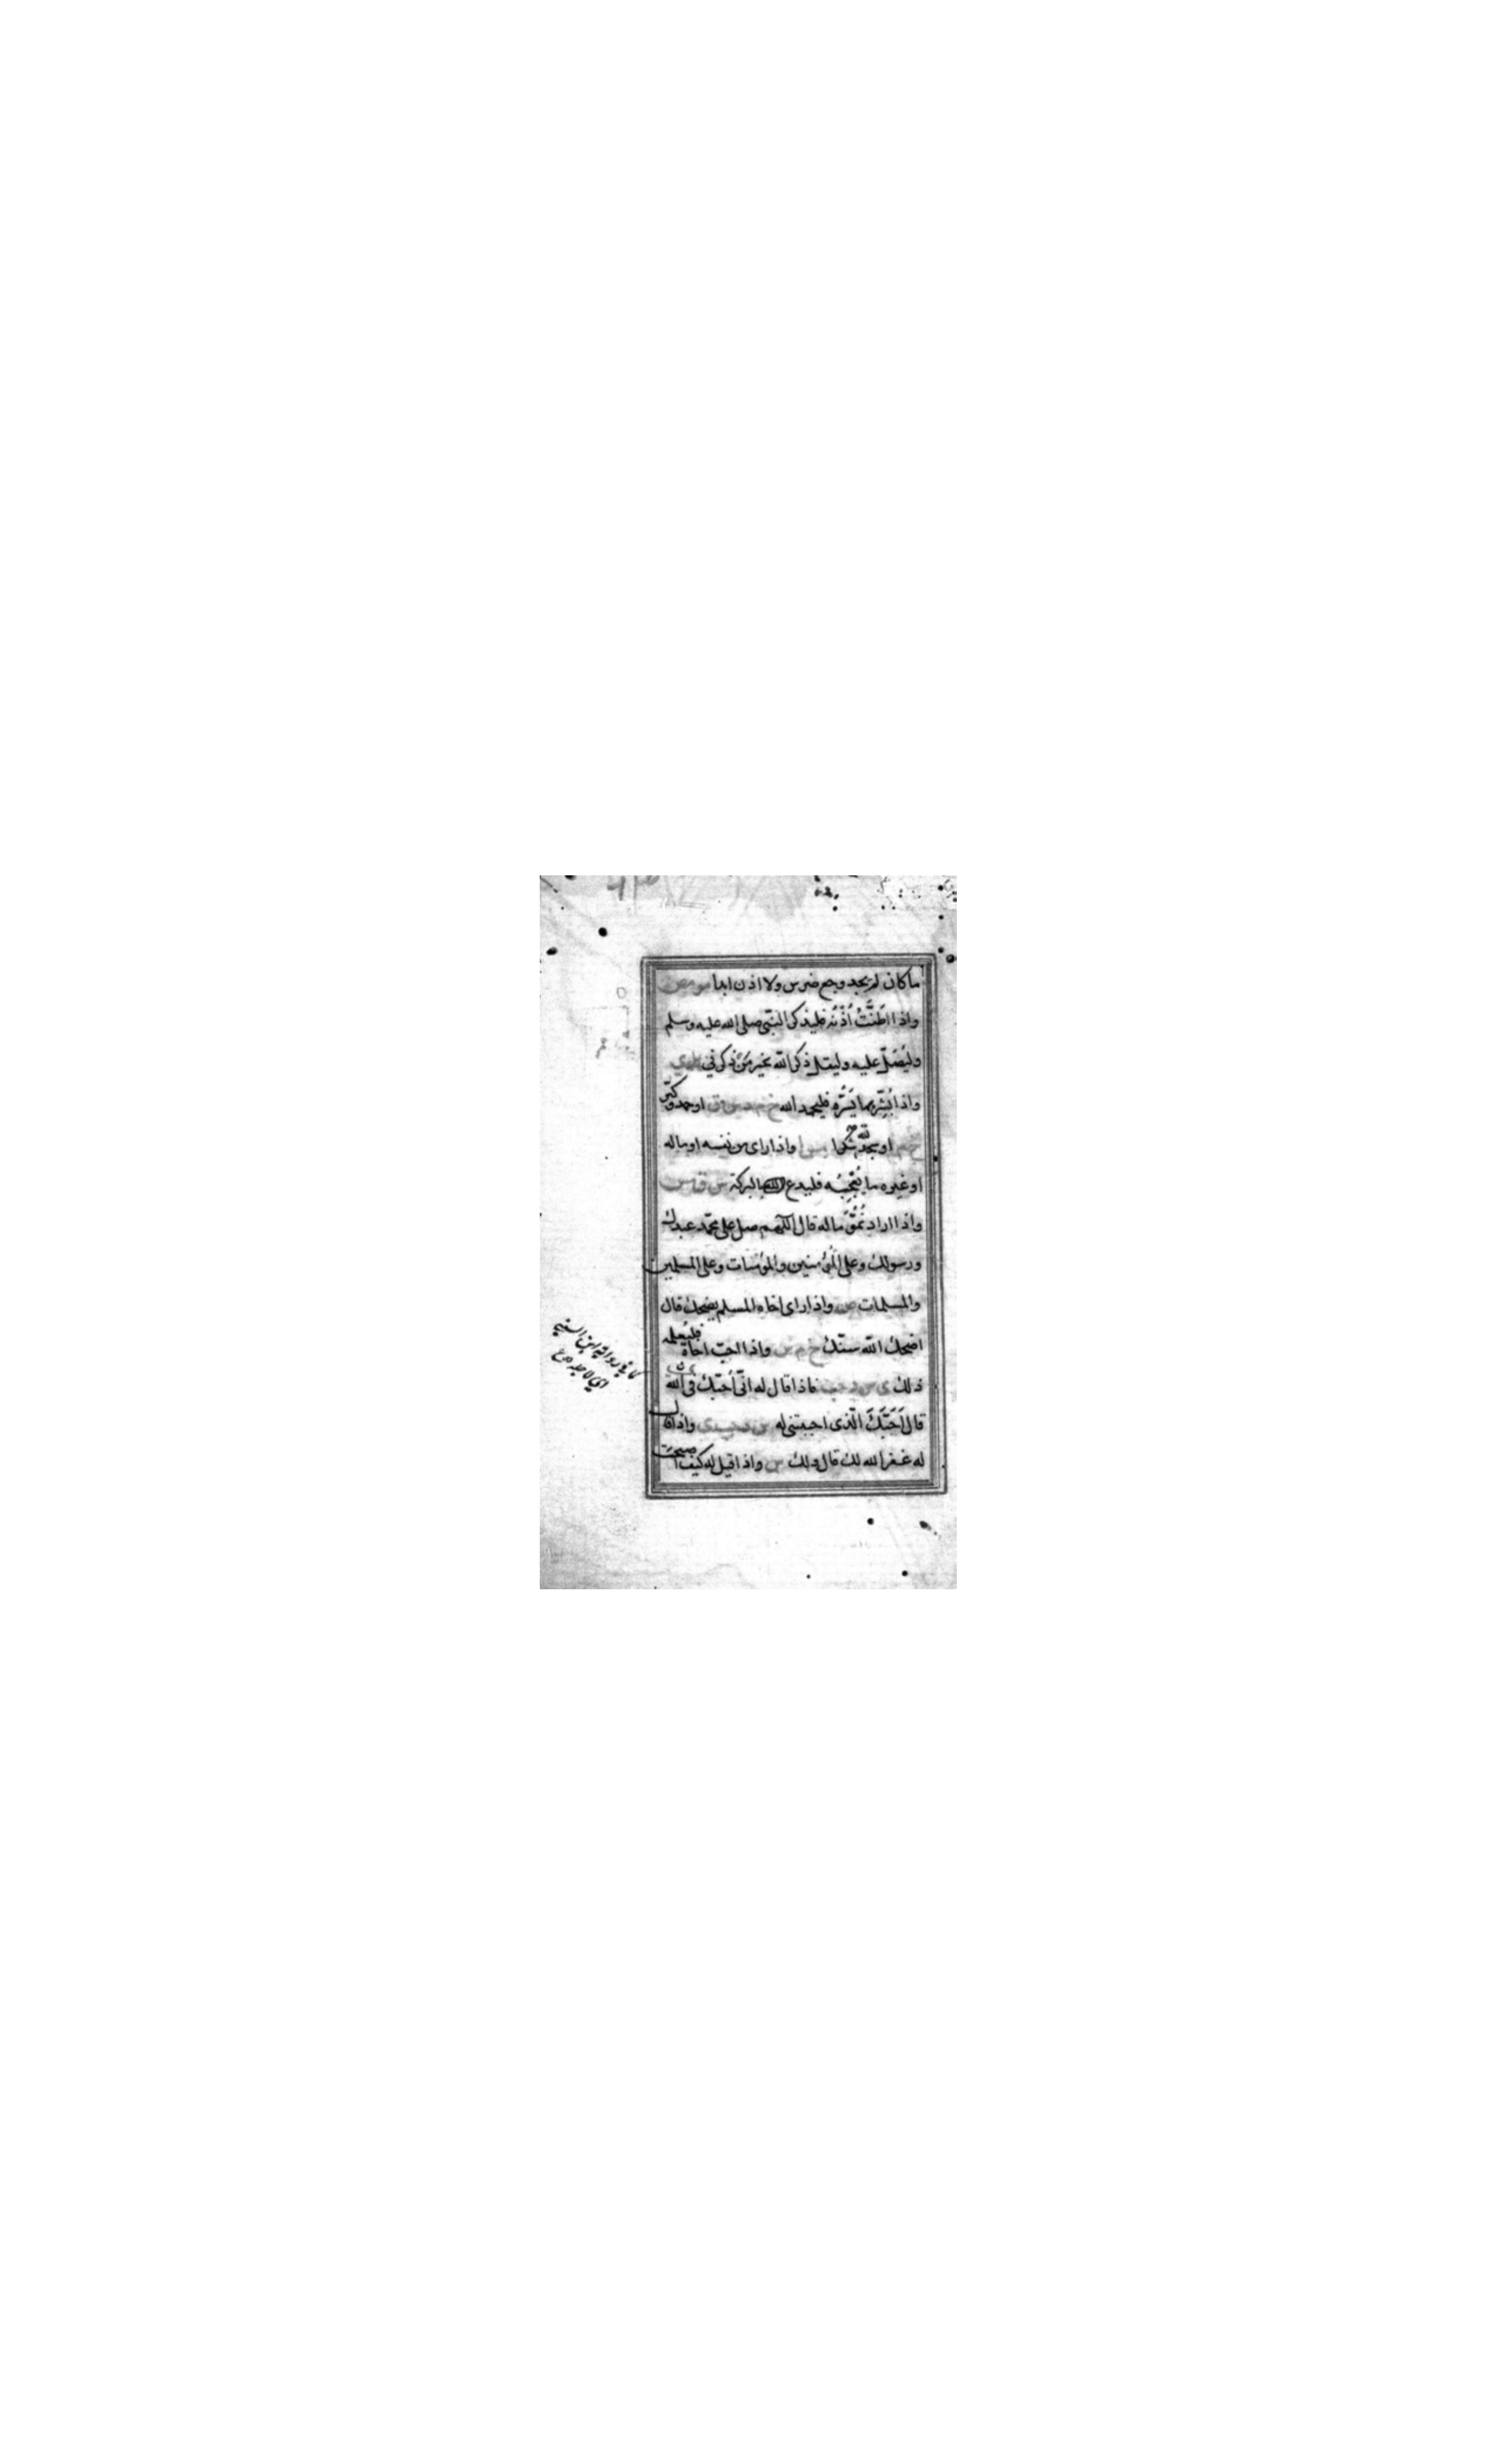 ما كان لم يجد وجع ضرس ولا اذن ابدا مو مص
واذا اطَنَّتْ اُذُنُه فليذكر النبّى صلى الله عليه وسلم
وليُصَلّ عليه وليقل ذكر الله بخير مَنْ ذكرنى
واذا بُشِّر بما يَسُرُّه فليحمد الله خ م د س ق او حمد وكبّر
خ م او سجد لله شكرا واذا راى من نفسه او ماله
او غيره ما يُعْجِبُه فليدع بالبركة س ق مس
واذا اراد نُمُوَّ ماله قال اللّهم صل على محمّد عبدك
ورسولك وعلى المؤمنين والمؤمنات وعلى المسلمين
والمسلمات ص واذا راى اخاه المسلم يضحك قال
اضحك الله سنّك خ م س واذا احبّ اخاه فليُعلمه
ذلك ى س د حب فاذا قال له انّى اُحبّك فى الله
قال اَحَبَّكَ الّذى احببتنى له س د حب ى واذا قال
له غفر الله لك قال ولك س واذا قيل له كيف اصبحت
كما فى رواية ابن السنى